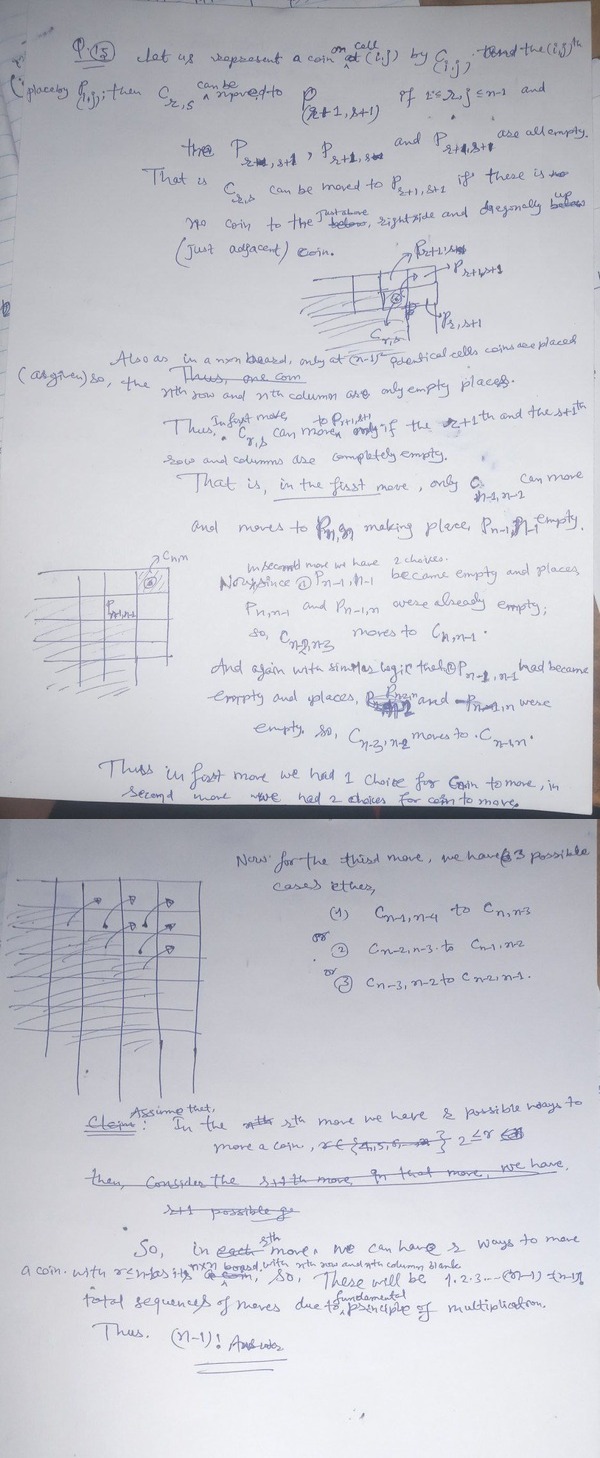 Q. 15 Let us represent a coin on cell (i,j) by C(i,j), and the (i,j)th
place by P(i,j); then C r,s can be moved to P(r+1, s+1) if 1≤r,j≤n-1 and
the P r,s+1, P r+1,s and P r+1,s+1 are all empty.
That is C r,s can be moved to P r+1,s+1 if there is no
no coin to the just above below, right side and diagonally up below
(just adjacent) coin.
P r+1,s
P r+1,s+1
P r,s+1
C r,s
Also as in a n×n board, only at (n-1)² identical cells coins are placed
(as given) so, the Thus, one coin
nth row and nth column are only empty places.
Thus. In first move, C r,s can move to P r+1,s+1 only if the r+1th and the s+1th
row and columns are completely empty.
That is, in the first move, only C n-1,n-2 can move
and moves to P n,n making place, P n-1,n-1 empty.
C n,n
P n-1,n-2
In second move we have 2 choices.
Now, since ① P n-1,n-1 became empty and places
P n,n-1 and P n-1,n were already empty;
so, C n-2,n-3 moves to C n,n-1.
And again with similar logic that ② P n-1,n-1 had became
empty and places, P n-2,n and P n-1,n were
empty. So, C n-3,n-2 moves to C n-1,n.
Thus in first move we had 1 choice for Coin to move, in
second move we had 2 choices for coin to move.
Now for the third move, we have 3 possible
cases either,
(1) C n-1,n-4 to C n,n-3
or
② C n-2,n-3 to C n-1,n-2
or
③ C n-3,n-2 to C n-2,n-1.
Claim: Assume that, In the rth move we have r possible ways to
move a coin, 2≤r
then, Consider the r+1th move in that move, we have.
r+1 possible
So, in each rth move, we can have r ways to move
a coin. with r≤n as its n×n board, with nth row and nth column blank
a coin, So, There will be 1.2.3...(n-1) = (n-1)!
total sequences of moves due to fundamental principle of multiplication.
Thus. (n-1)! Answer